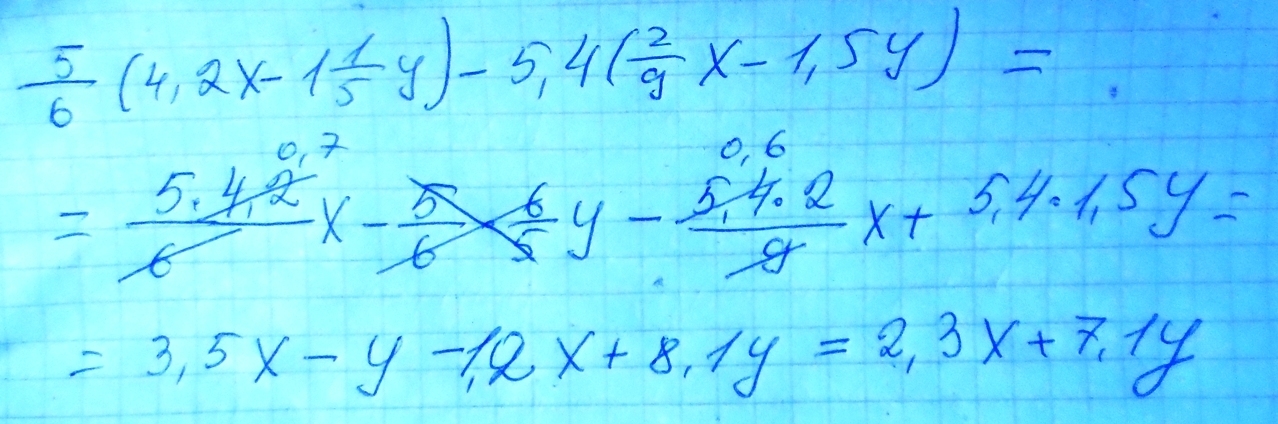 5/6 (4,2x - 1 1/5 y) - 5,4(2/9 x - 1,5y) =
0,7 0,6
= 5·4,2/6 x - 5/6 · 6/5 y - 5,4·2/9 x + 5,4·1,5y =
= 3,5x - y - 1,2x + 8,1y = 2,3x + 7,1y